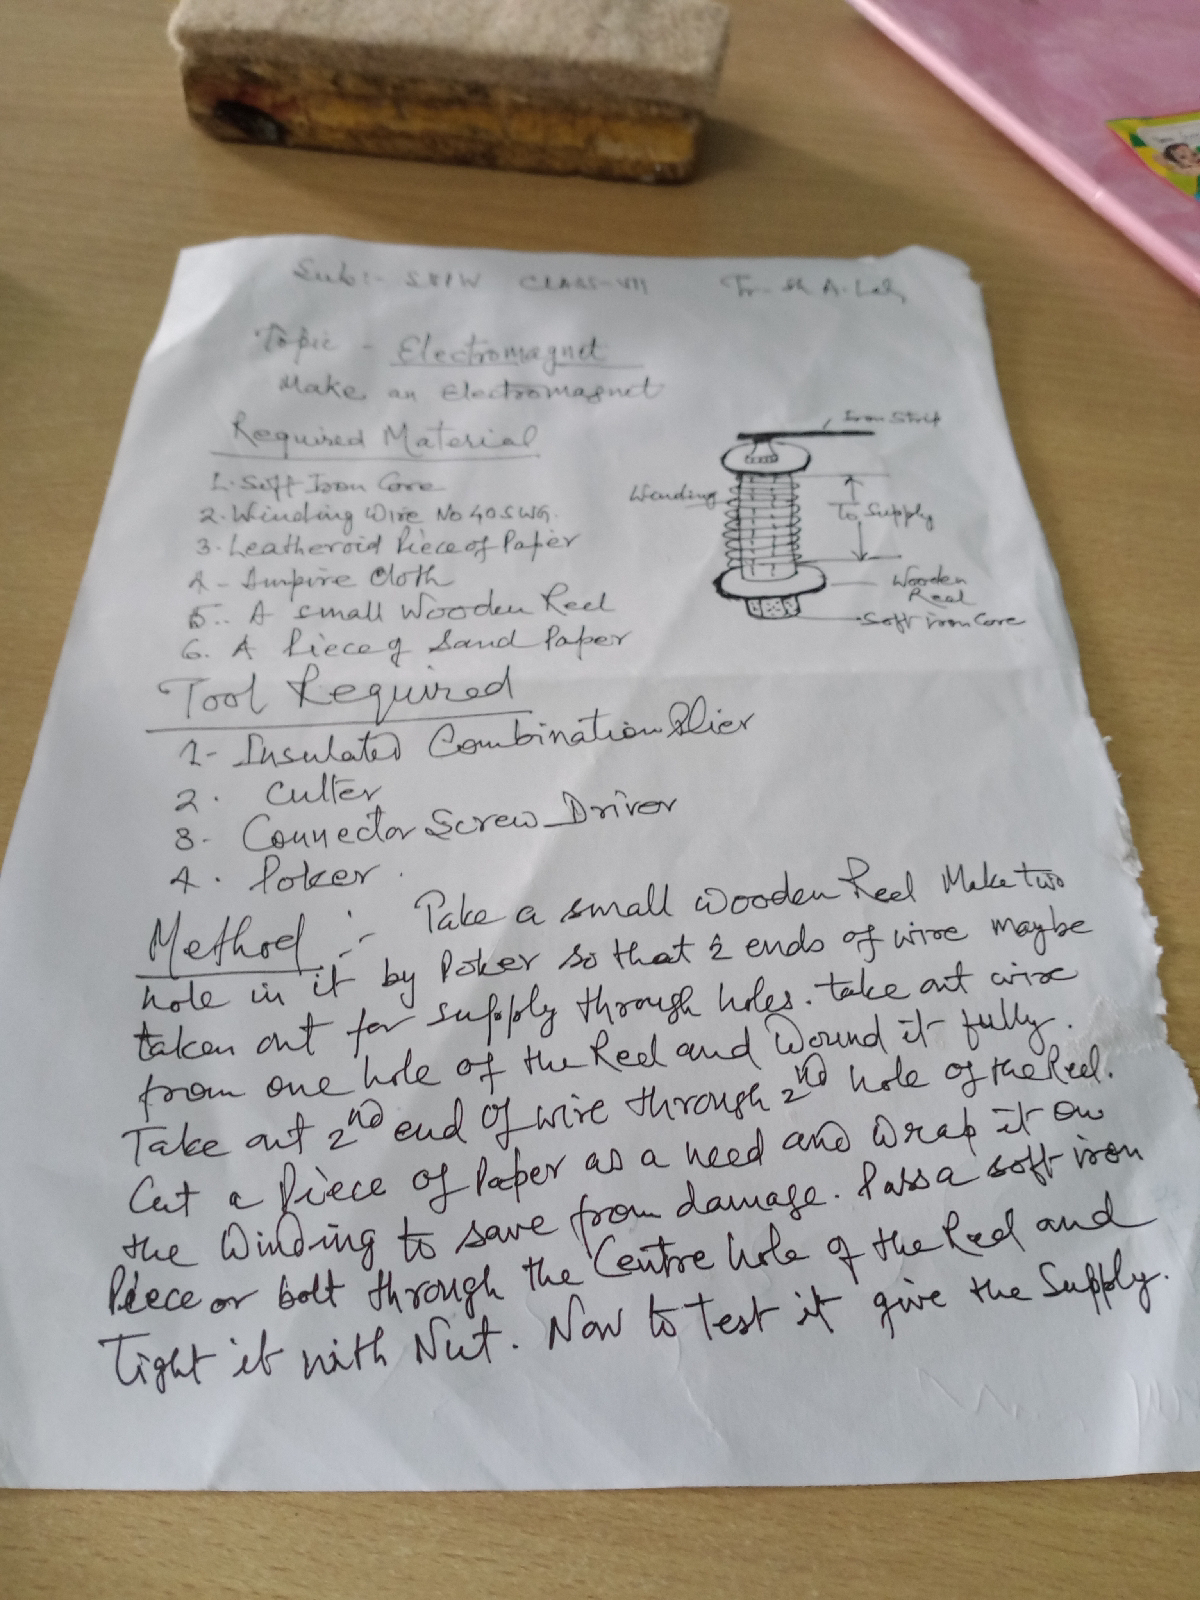 Sub:- SUPW CLASS-VII Tr. Sh A. Lal,
Topic - Electromagnet
Make an Electromagnet
Required Material
1. Soft Iron Core
2. Winding Wire No 40 SWG.
3. Leatheroid Piece of Paper
4 - Ampire Cloth
5.. A small Wooden Reel
6. A Piece of Sand Paper
Iron Strip
Winding
To Supply
Wooden
Reel
Soft iron Core
Tool Required
1- Insulated Combination Plier
2. Cutter
3- Connector Screw Driver
4. Poker.
Method :- Take a small wooden Reel Make two
hole in it by Poker so that 2 ends of wire maybe
taken out for supply through holes. take out wire
from one hole of the Reel and Wound it fully.
Take out 2nd end of wire through 2nd hole of the Reel.
Cut a Piece of Paper as a need and Wrap it on
the Winding to save from damage. Pass a soft iron
Piece or bolt through the Centre hole of the Reel and
Tight it with Nut. Now to Test it give the Supply.